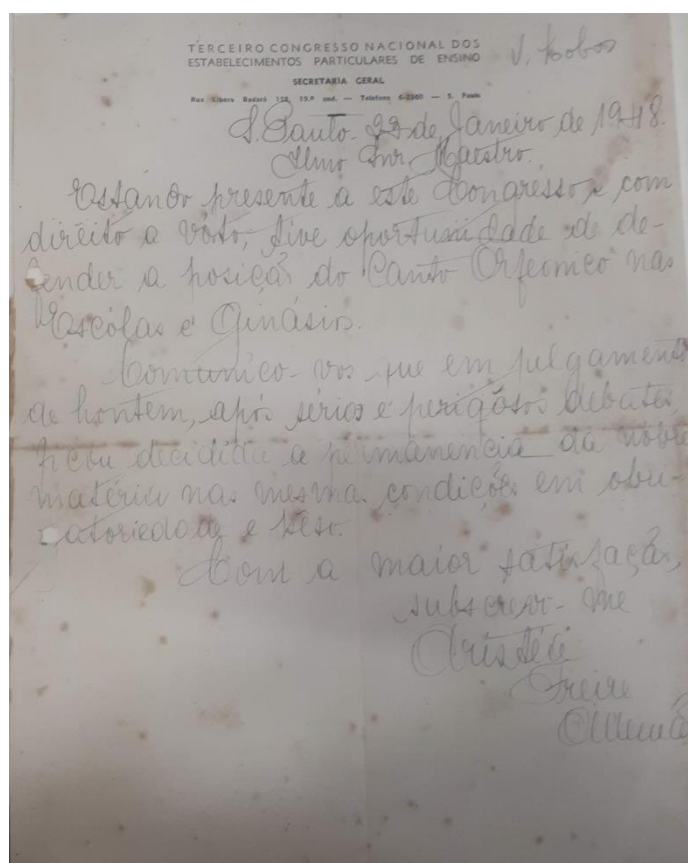 TERCEIRO CONGRESSO NACIONAL DOS
ESTABELECIMENTOS PARTICULARES DE ENSINO
V. Lobos
SECRETARIA GERAL
Rua Libero Badaró 158, 19.º and. — Telefone 6-2360 — S. Paulo
S. Paulo. 22 de Janeiro de 1948.
Ilmo Snr. Maestro.
Estando presente a este Congresso e com
direito a vóto, tive oportunidade de de-
fender a posição do Canto Orfeonico nas
Escólas e Ginásios.
Comunico-vos que em julgamento
de hontem, após sérios e perigósos debates,
ficou decidida a permanencia da nobre
matéria nas mesmas condições em obri-
gatoriedade e peso.
Com a maior satisfação,
subscrevo-me
Freire